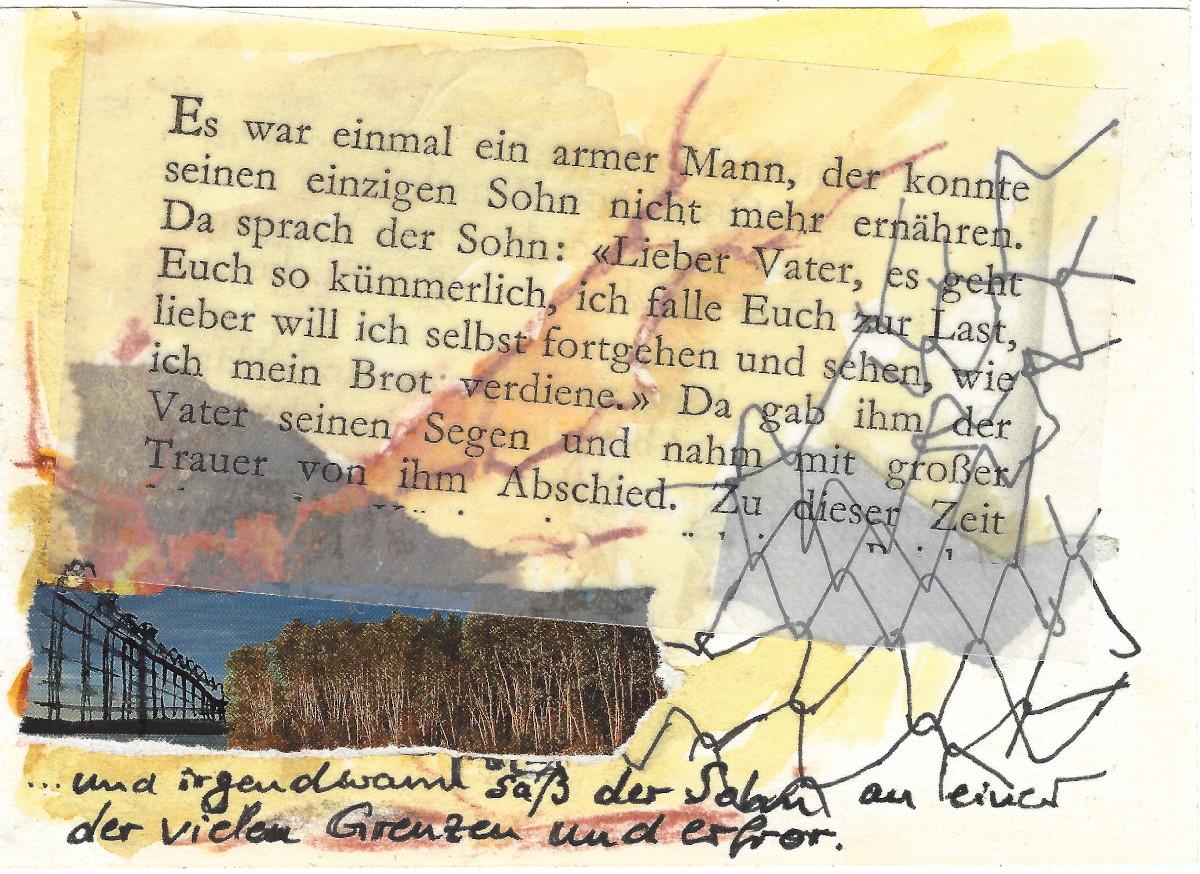 Es war einmal ein armer Mann, der konnte
seinen einzigen Sohn nicht mehr ernähren.
Da sprach der Sohn: «Lieber Vater, es geht
Euch so kümmerlich, ich falle Euch zur Last,
lieber will ich selbst fortgehen und sehen, wie
ich mein Brot verdiene.» Da gab ihm der
Vater seinen Segen und nahm mit großer
Trauer von ihm Abschied. Zu dieser Zeit
...und irgendwann saß der Sohn an einer
der vielen Grenzen und erfror.